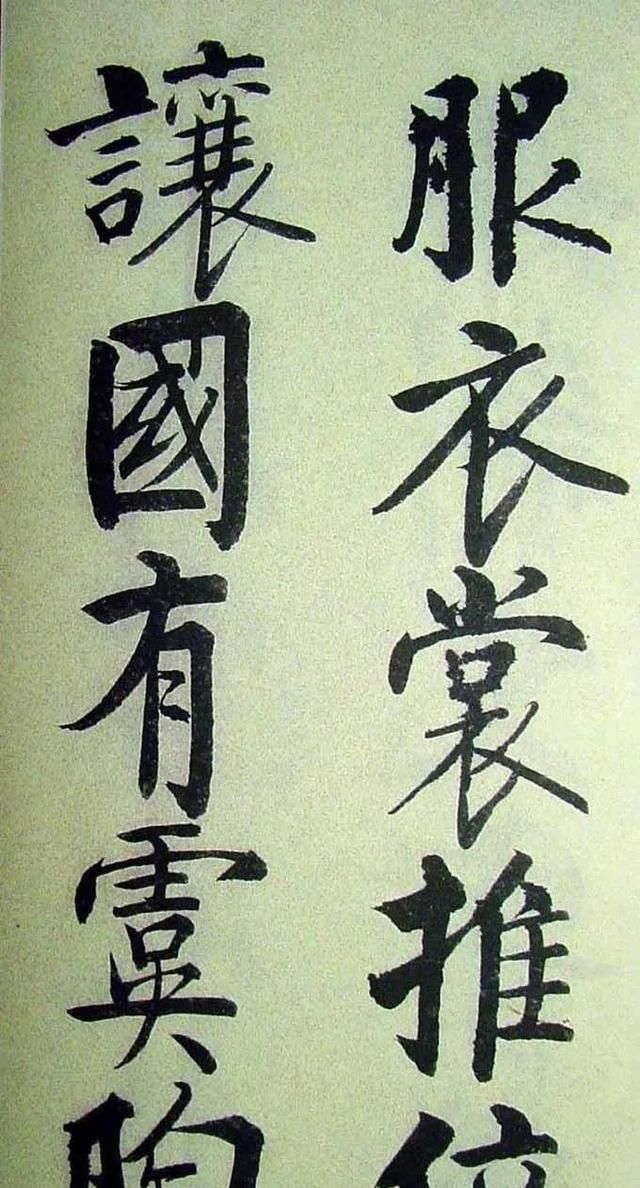 服衣裳推位
讓國有虞陶